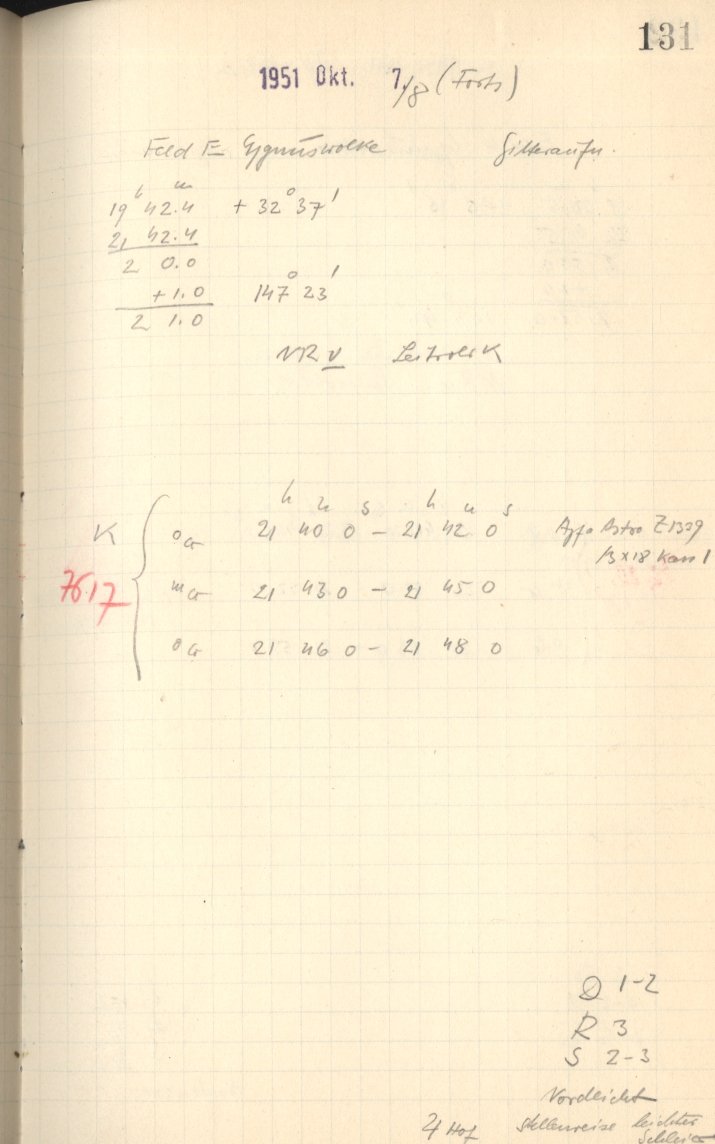 131
1951 Okt. 7./8 (Forts)
Feld E Cygnuswolke Gitteraufn.
19 h 42.4 m + 32° 37'
21 42.4
2 0.0
+1.0 147° 23'
2 1.0
NR V K
h m s h m s
K o Gr 21 40 0 – 21 42 0 Agfa Astro Z 1329
13 x 18 Kass 1
7617 m Gr 21 43 0 – 21 45 0
o Gr 21 46 0 – 21 48 0
Q 1-2
R 3
S 2-3
Nordlicht
♃ Hof stellenweise leichter
Schleier